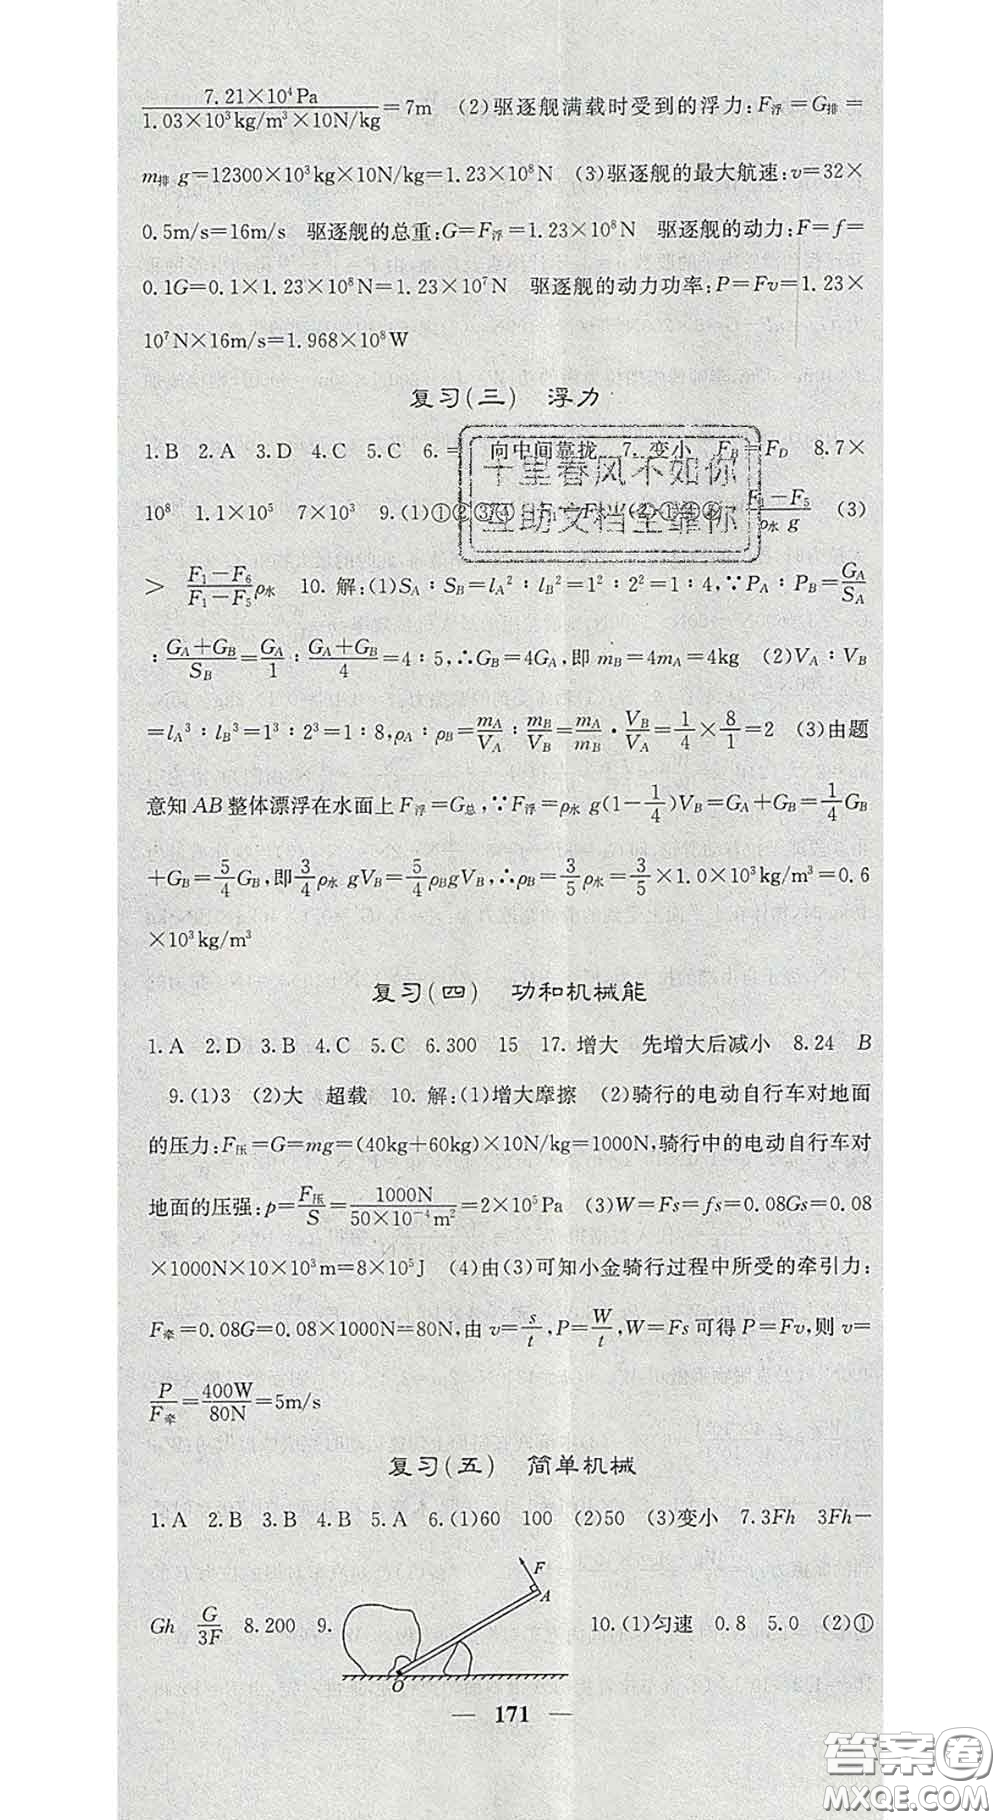 7.21×10⁴Pa/1.03×10³kg/m³×10N/kg=7m (2)驱逐舰满载时受到的浮力:F浮=G排=
m排 g=12300×10³kg×10N/kg=1.23×10⁸N (3)驱逐舰的最大航速:v=32×
0.5m/s=16m/s 驱逐舰的总重:G=F浮=1.23×10⁸N 驱逐舰的动力:F=f=
0.1G=0.1×1.23×10⁸N=1.23×10⁷N 驱逐舰的动力功率:P=Fv=1.23×
10⁷N×16m/s=1.968×10⁸W
复习(三) 浮力
1.B 2.A 3.D 4.C 5.C 6.= 向中间靠拢 7.变小 F_B=F_D 8.7×
10⁸ 1.1×10⁵ 7×10³ 9.(1)①②③④ (F₁-F₅)/(ρ水 g) (3)
> (F₁-F₆)/(F₁-F₅)ρ水 10.解:(1)S_A∶S_B=l_A²∶l_B²=1²∶2²=1∶4,∵P_A∶P_B=G_A/S_A
∶(G_A+G_B)/S_B=G_A/1∶(G_A+G_B)/4=4∶5,∴G_B=4G_A,即m_B=4m_A=4kg (2)V_A∶V_B
=l_A³∶l_B³=1³∶2³=1∶8,ρ_A∶ρ_B=m_A/V_A∶m_B/V_B=m_A/m_B·V_B/V_A=1/4×8/1=2 (3)由题
意知AB整体漂浮在水面上F浮=G总,∵F浮=ρ水 g(1-1/4)V_B=G_A+G_B=1/4G_B
+G_B=5/4G_B,即3/4ρ水 gV_B=5/4ρ_BgV_B,∴ρ_B=3/5ρ水=3/5×1.0×10³kg/m³=0.6
×10³kg/m³
复习(四) 功和机械能
1.A 2.D 3.B 4.C 5.C 6.300 15 17.增大 先增大后减小 8.24 B
9.(1)3 (2)大 超载 10.解:(1)增大摩擦 (2)骑行的电动自行车对地面
的压力:F压=G=mg=(40kg+60kg)×10N/kg=1000N,骑行中的电动自行车对
地面的压强:p=F压/S=1000N/50×10⁻⁴m²=2×10⁵Pa (3)W=Fs=fs=0.08Gs=0.08
×1000N×10×10³m=8×10⁵J (4)由(3)可知小金骑行过程中所受的牵引力:
F牵=0.08G=0.08×1000N=80N,由v=s/t,P=W/t,W=Fs可得P=Fv,则v=
P/F牵=400W/80N=5m/s
复习(五) 简单机械
1.A 2.B 3.B 4.B 5.A 6.(1)60 100 (2)50 (3)变小 7.3Fh 3Fh-
Gh G/3F 8.200 9. 10.(1)匀速 0.8 5.0 (2)①
F
A
O
— 171 —
千里春风不如你
互助文档全靠你
答案圈
MXQE.COM